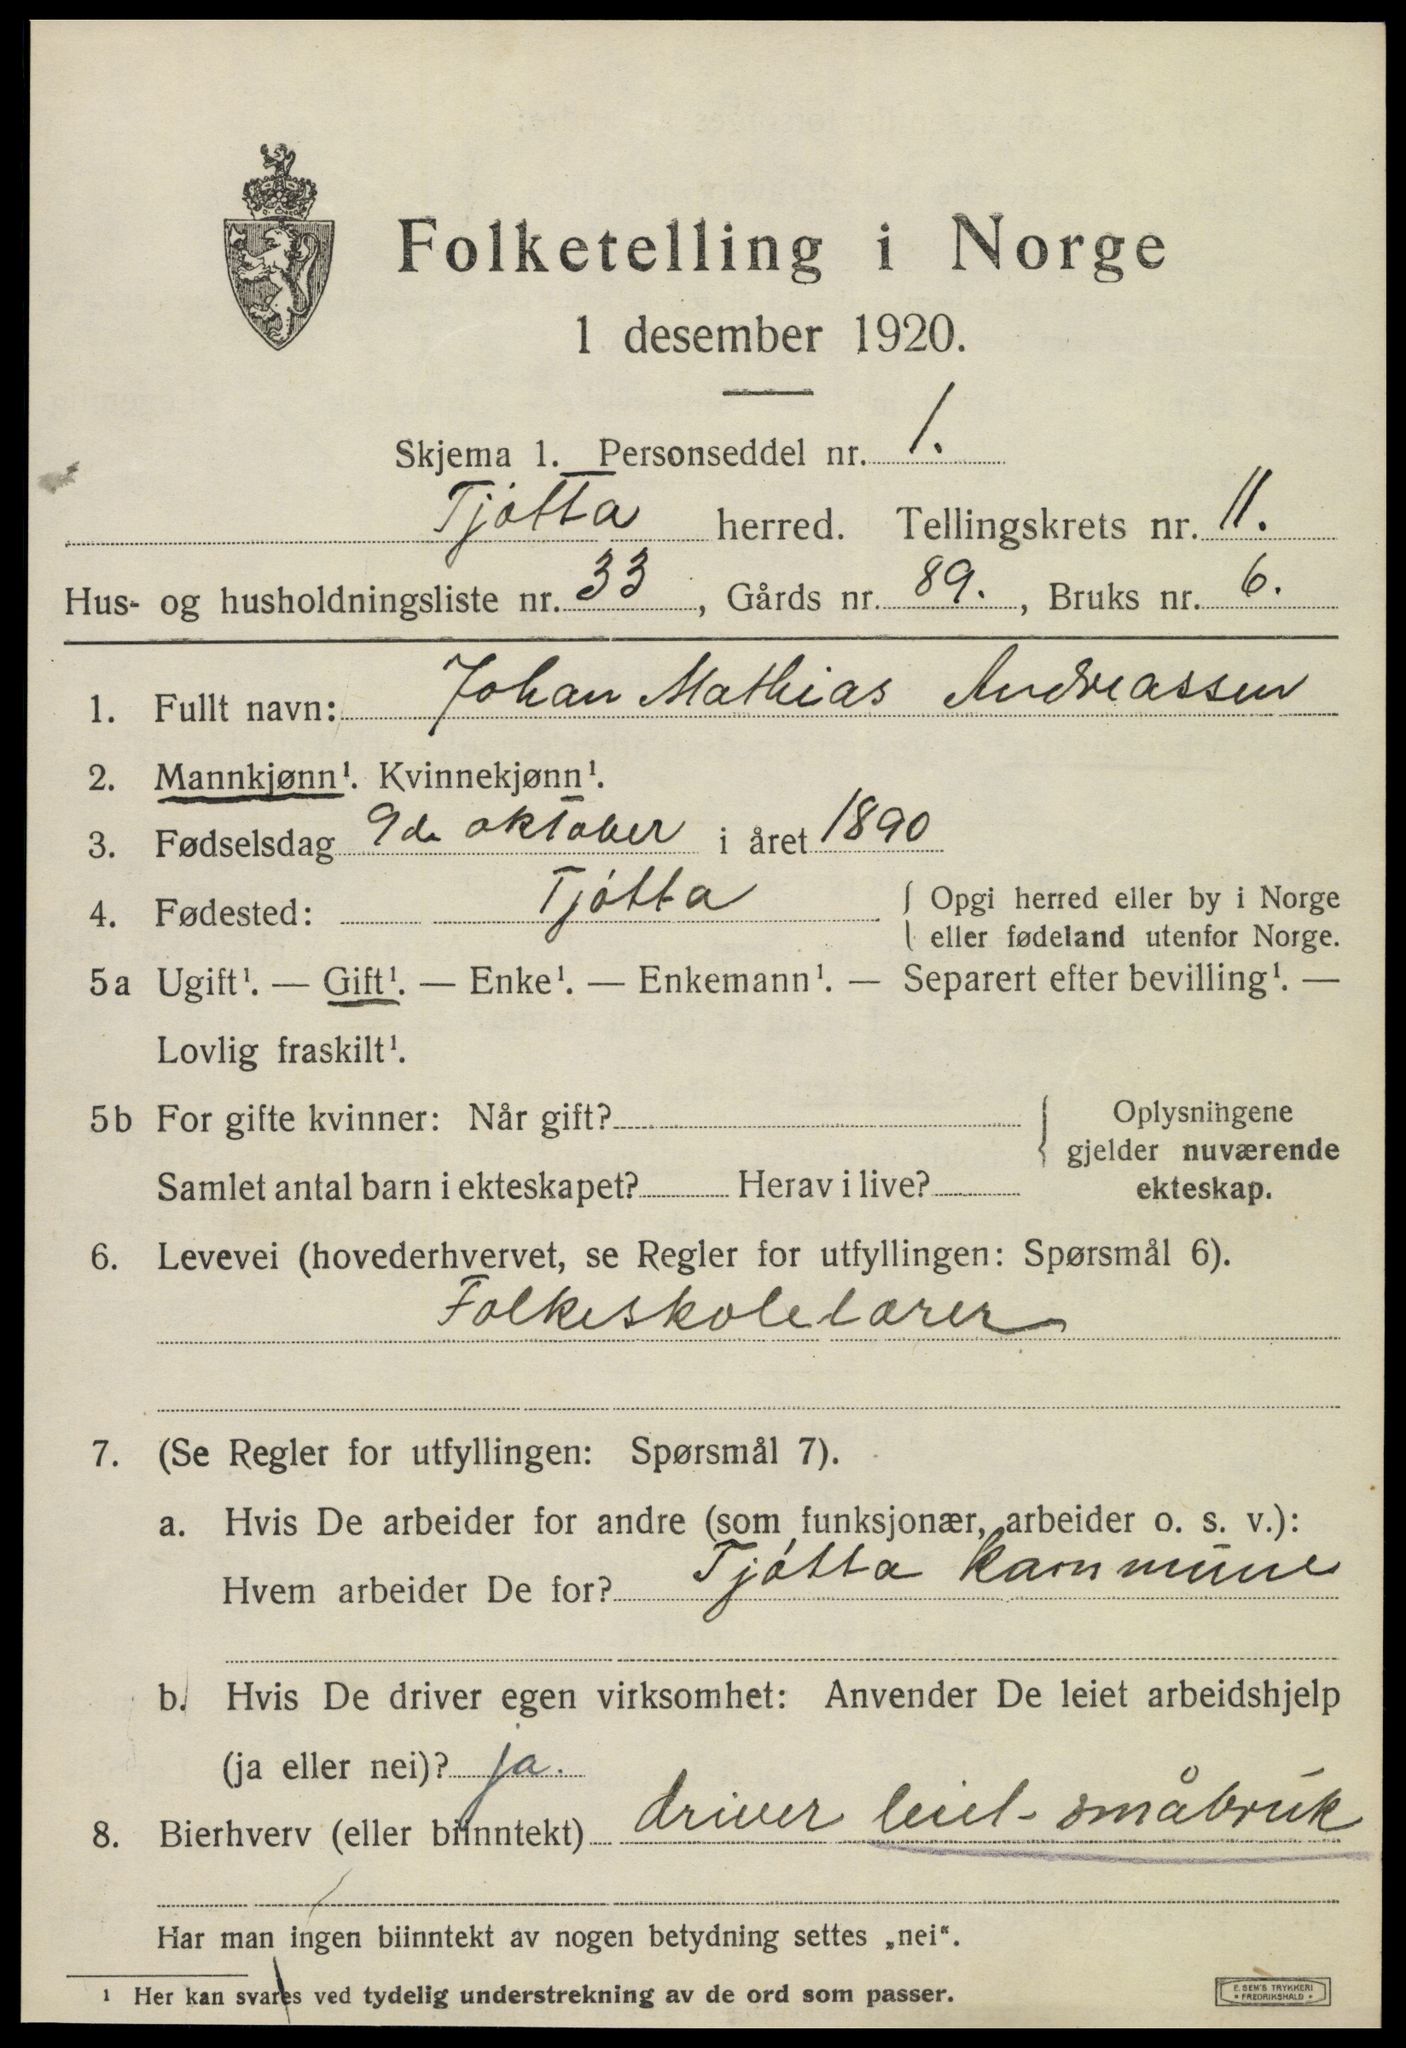 Folketelling i Norge
1 desember 1920.
Skjema 1. Personseddel nr. 1.
Tjøtta herred. Tellingskrets nr. 11.
Hus- og husholdningsliste nr. 33, Gårds nr. 89., Bruks nr. 6.
1. Fullt navn: Johan Mathias Andreassen
2. Mannkjønn¹. Kvinnekjønn¹.
3. Fødselsdag 9de oktober i året 1890
4. Fødested: Tjøtta { Opgi herred eller by i Norge
eller fødeland utenfor Norge.
5a Ugift¹. — Gift¹. — Enke¹. — Enkemann¹. — Separert efter bevilling¹. —
Lovlig fraskilt¹.
5b For gifte kvinner: Når gift? { Oplysningene
gjelder nuværende
Samlet antal barn i ekteskapet? Herav i live? ekteskap.
6. Levevei (hovederhvervet, se Regler for utfyllingen: Spørsmål 6).
Folkeskolelærer
7. (Se Regler for utfyllingen: Spørsmål 7).
a. Hvis De arbeider for andre (som funksjonær, arbeider o. s. v.):
Hvem arbeider De for? Tjøtta kommune
b. Hvis De driver egen virksomhet: Anvender De leiet arbeidshjelp
(ja eller nei)? ja.
8. Bierhverv (eller biinntekt) driver leiet småbruk
Har man ingen biinntekt av nogen betydning settes „nei“.
¹ Her kan svares ved tydelig understrekning av de ord som passer.
E. SEM'S TRYKKERI
* FREDRIKSHALD *